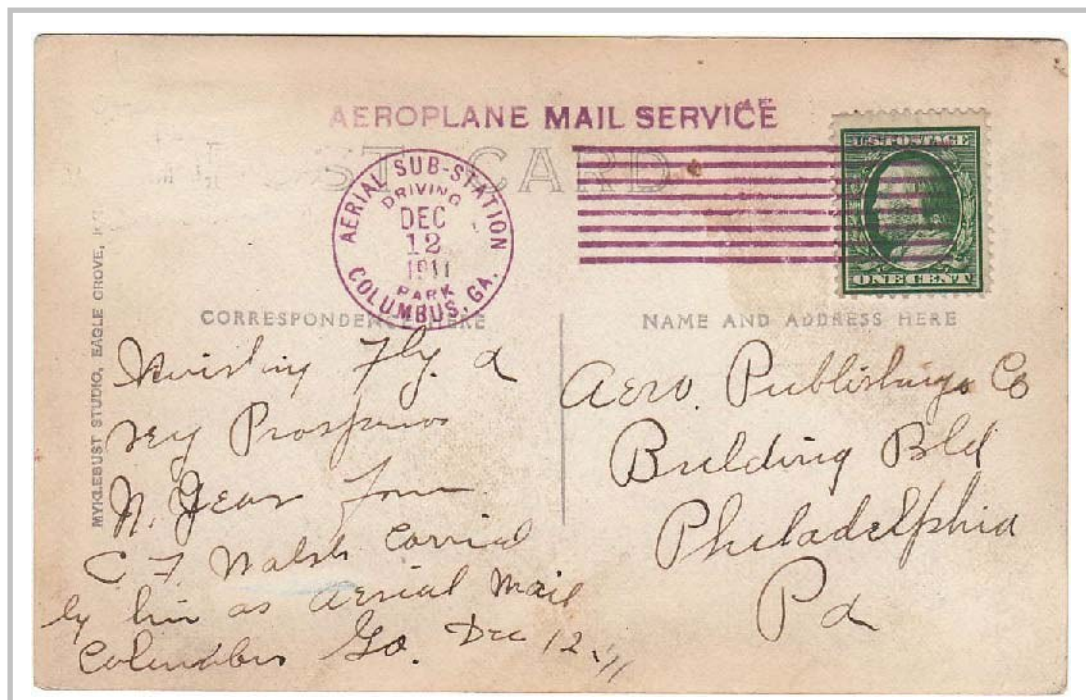 AEROPLANE MAIL SERVICE
POST CARD
AERIAL SUB-STATION
DRIVING
DEC
12
1911
PARK
COLUMBUS, GA.
U.S. POSTAGE
ONE CENT
MYKLEBUST STUDIO, EAGLE GROVE,
CORRESPONDENCE HERE
Wishing Fly. a
very Prosperous
N. Year from
C F. Walsh Carried
by him as Aerial Mail
Columbus Ga. Dec 12-11
NAME AND ADDRESS HERE
Aero. Publishing Co
Building Bld
Philadelphia
Pa